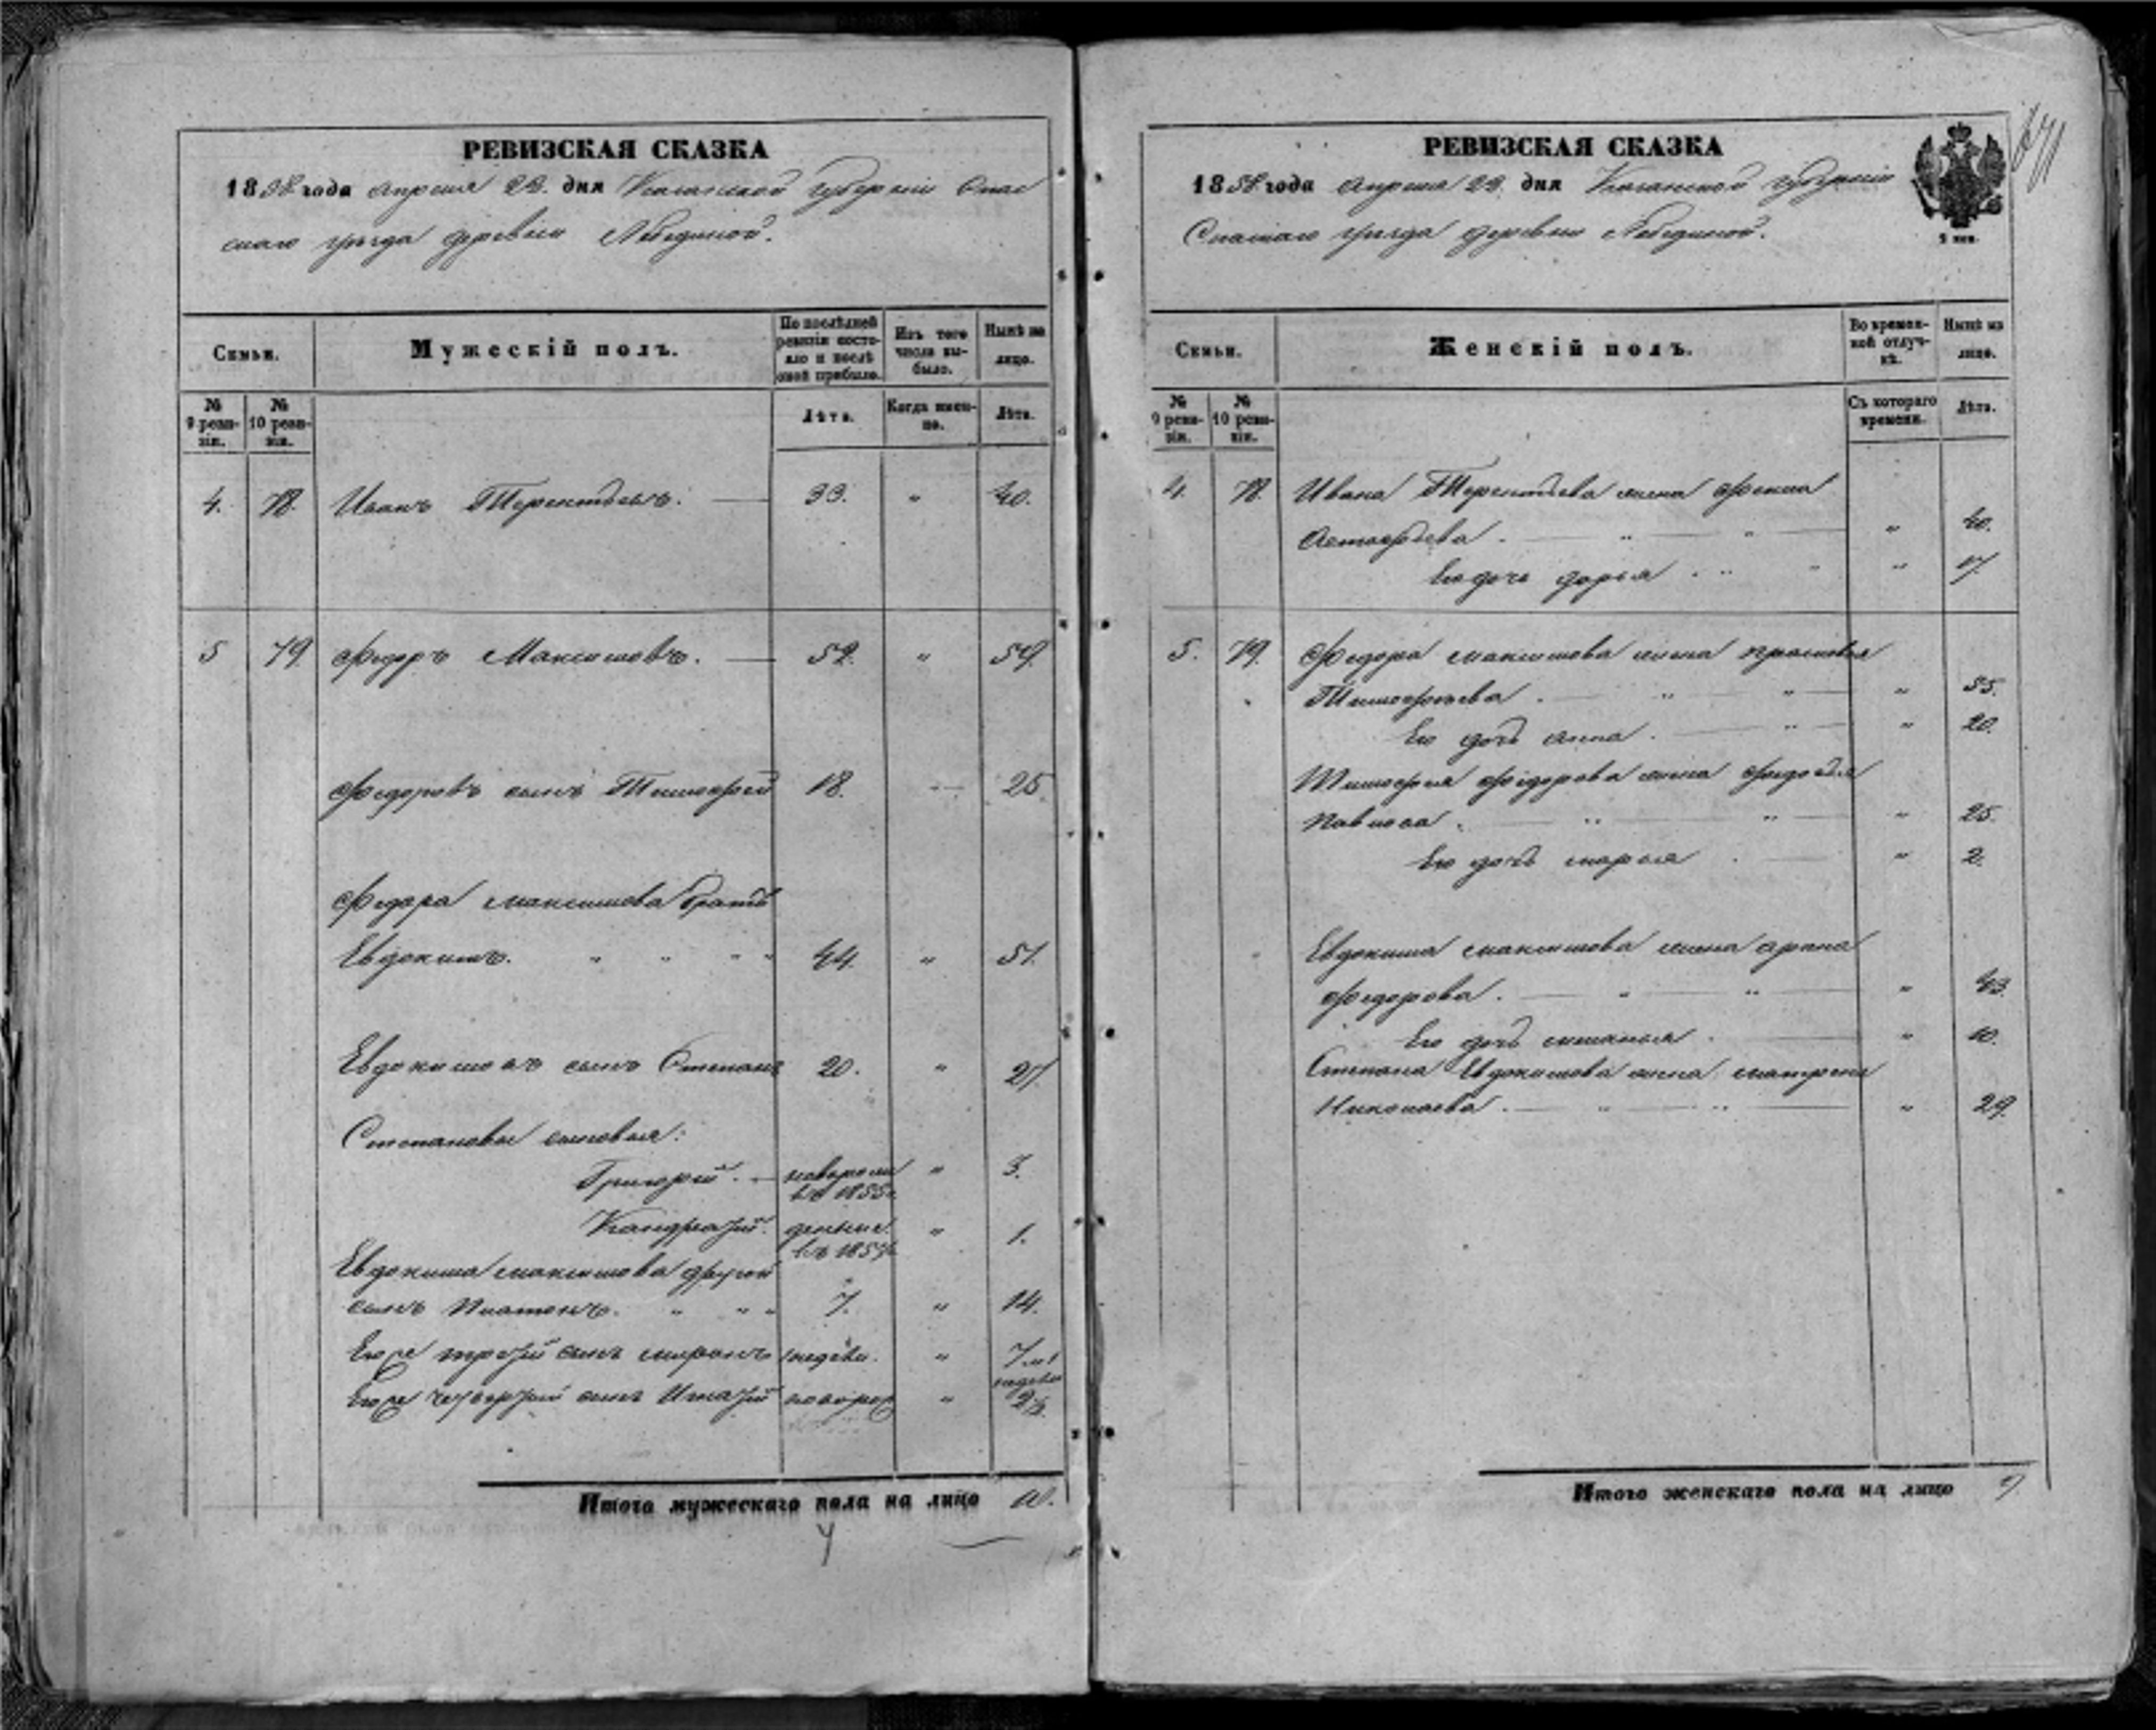 РЕВИЗСКАЯ СКАЗКА
1858 года апреля 23. дня Казанской губернiи Спас
скаго уѣзда деревни Лебединой.
Семьи.
Мужескiй полъ.
По послѣдней ревизiи состояло и послѣ оной прибыло.
Изъ того числа выбыло.
Нынѣ на лицо.
№ 9 ревизiи.
№ 10 ревизiи.
Лѣта.
Когда именно.
Лѣта.
4. 78. Иванъ Терентьевъ. 33. " 40.
5 79. Федоръ Максимовъ. 52. " 59.
Федоровъ сынъ Тимофей 18. 25.
Федора Максимова братъ
Евдокимъ. " " " " 44. " 51.
Евдокимовъ сынъ Степанъ 20. " 27.
Степановы сыновья:
Григорiй. новорож " 3.
въ 1855
Кандратiй. " 1.
въ
Евдокима Максимова другой
сынъ Платонъ. " " " 7. " 14.
Его же третiй сынъ Миронъ недѣли. " 7
Его же четвертый сынъ Игнатiй новорож "
Итого мужескаго пола на лицо 10.
РЕВИЗСКАЯ СКАЗКА
1858 года апреля 23. дня Казанской губернiи
Спаскаго уѣзда деревни Лебединой.
Семьи.
Женскiй полъ.
Во временной отлучкѣ.
Нынѣ на лицо.
№ 9 ревизiи.
№ 10 ревизiи.
Съ котораго времени.
Лѣта.
4. 78. Ивана Терентьева жена
Астафьева. " " " 40.
Его дочь Дарья. " " " 17.
5. 79. Федора Максимова жена Прасковья
Тимофеева. " " " 55.
Его дочь Анна. " " 20.
Тимофея Федорова жена Федосья
Павлова. " " " 25.
Его дочь Марья. " 2.
Евдокима Максимова жена Арина
Федорова. " " " 43.
Его дочь " 10.
Степана Евдокимова жена Матрена
Николаева. " " " 29.
Итого женскаго пола на лицо 9